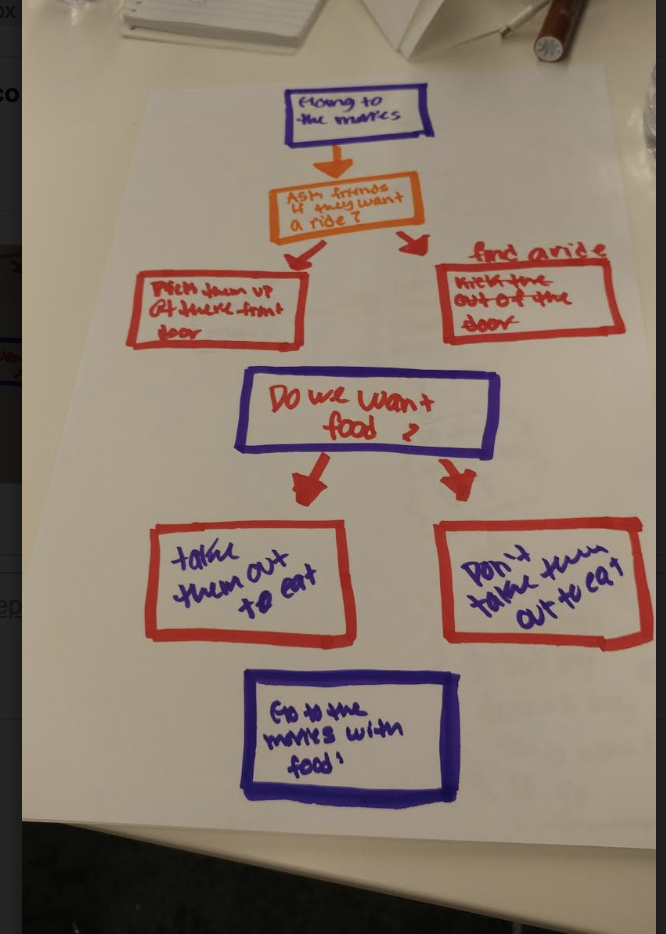 Going to
the movies
Ask friends
if they want
a ride?
Pick them up
at there front
door
find a ride
kick the
out of the
door
Do we want
food ?
take
them out
to eat
Don't
take them
out to eat
Go to the
movies with
food!
co
ep